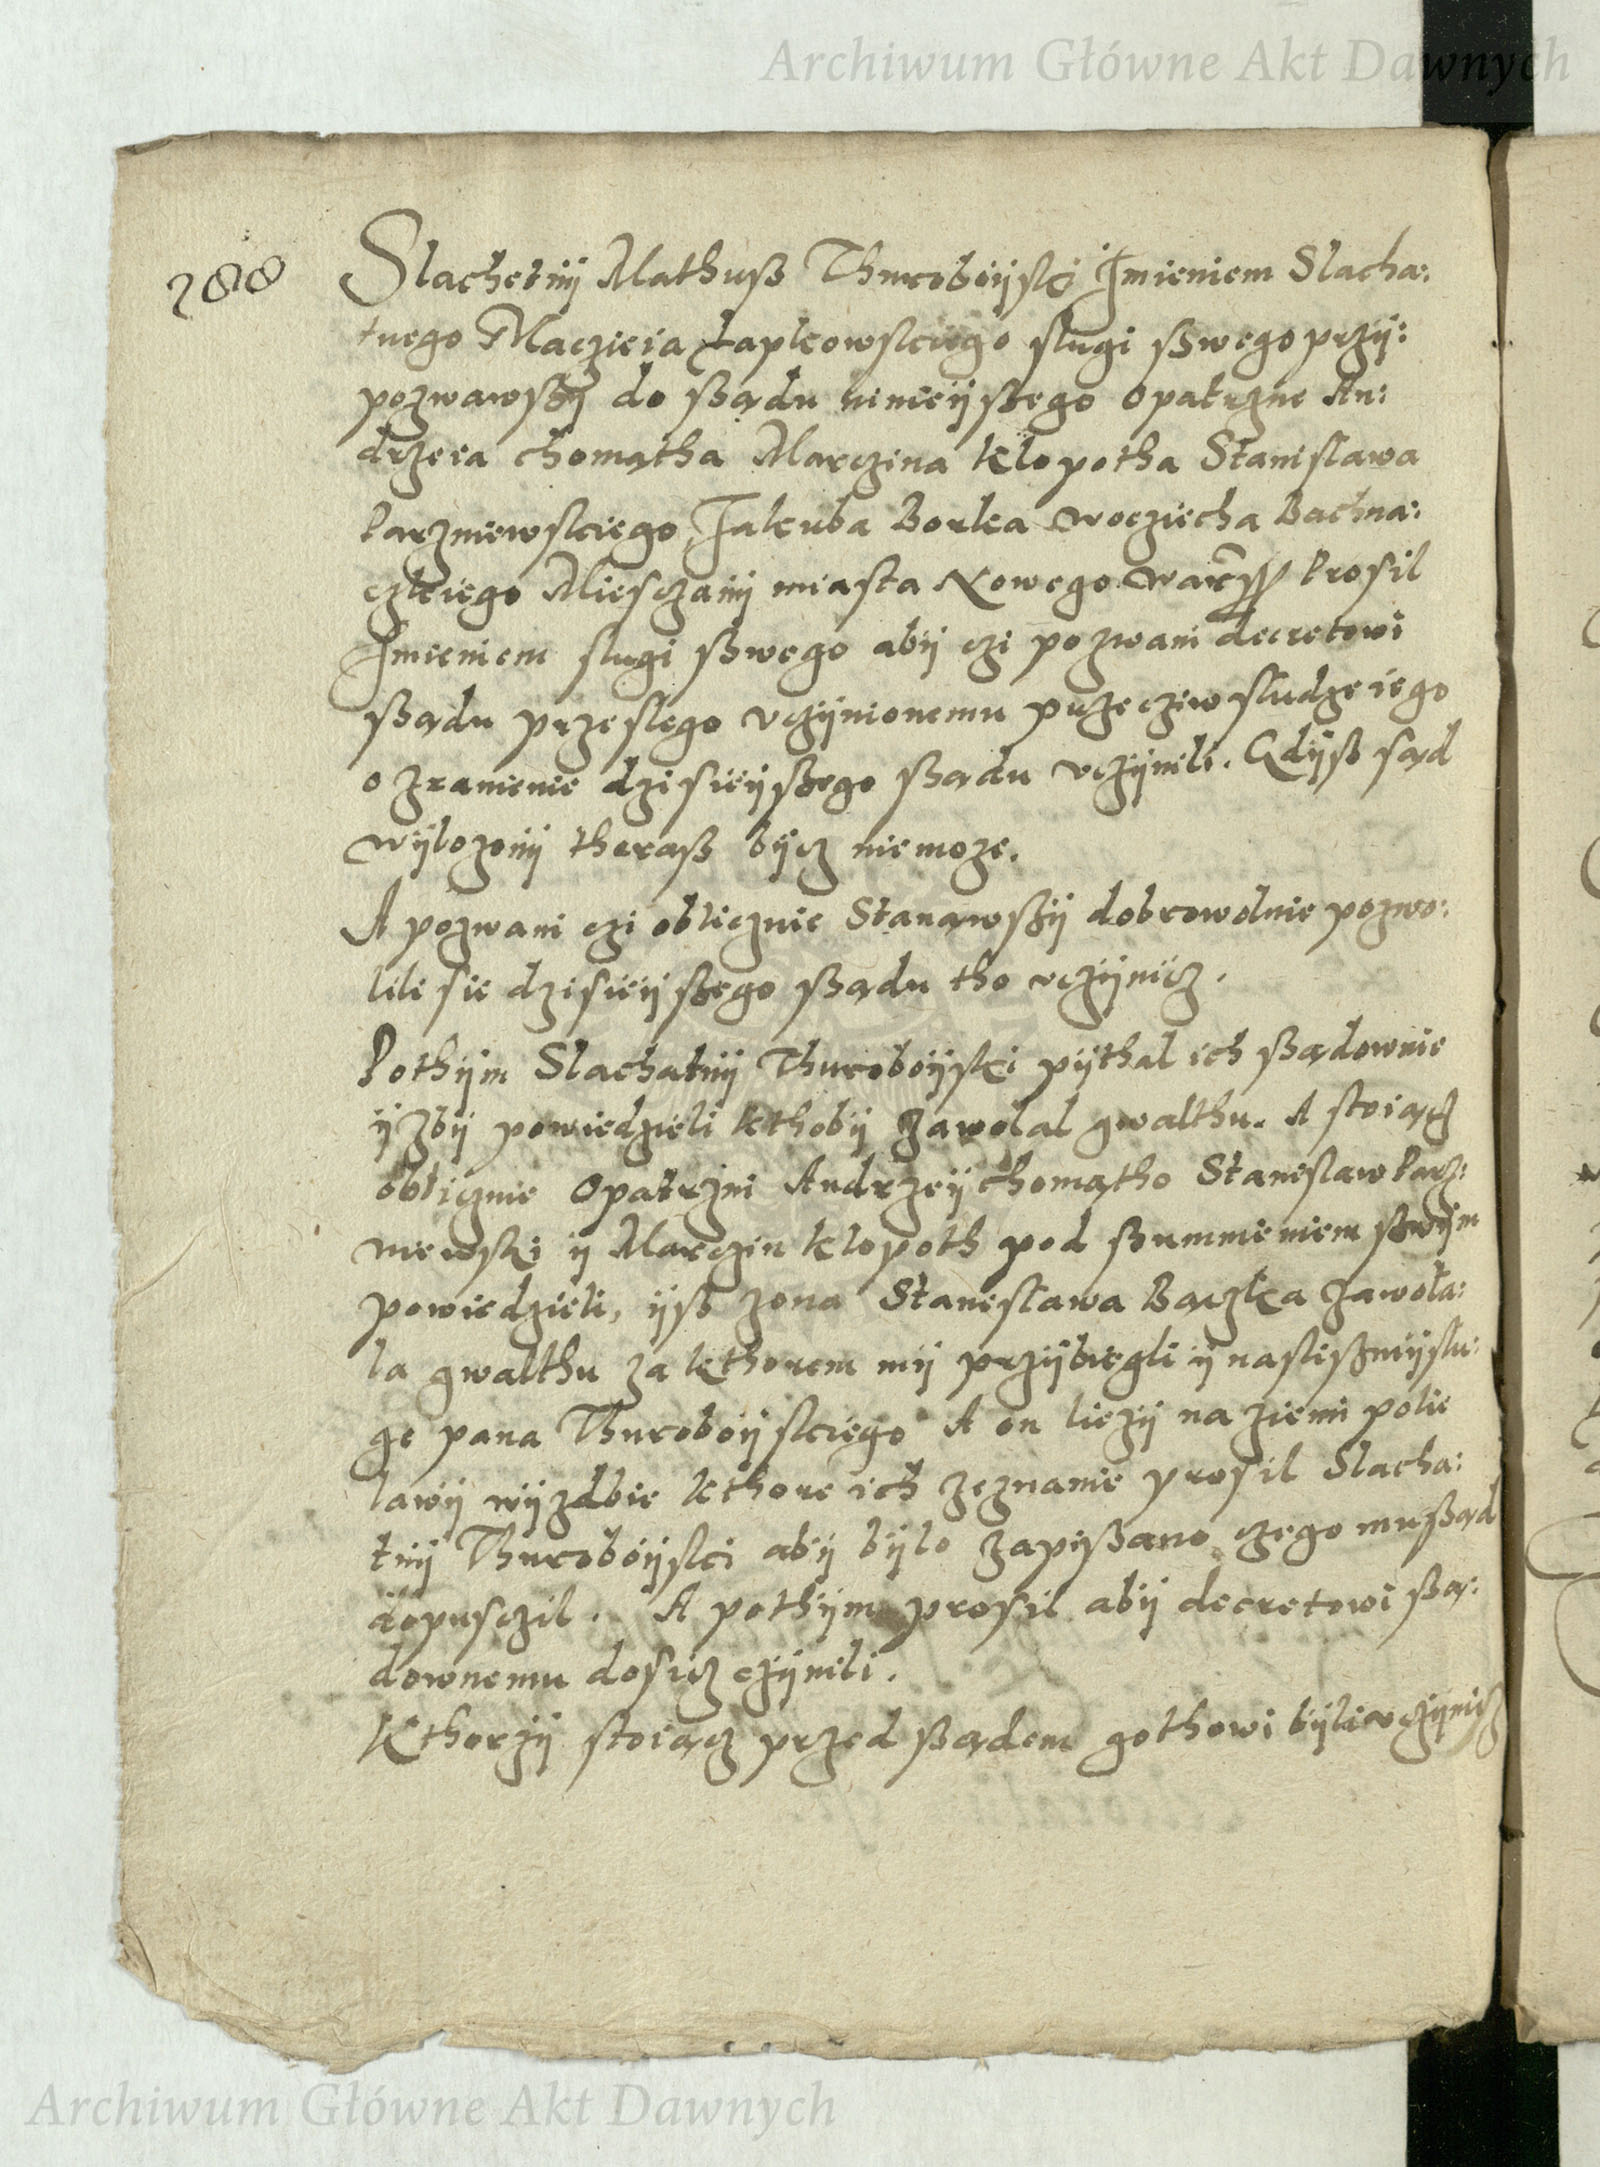 Archiwum Główne Akt Dawnych
288
Slachetnÿ Mathuß Thuroboÿski Imieniem Slacha:
tnego Maczieia Łapkowskiego slugi ßwego przÿ:
pozwawßÿ do ßądu ninieÿßego Opatrzne An:
drzeia chomątha Marczina Klopotha Stanislawa
Parzniewskiego Jakuba Borka Wocziecha Bachna:
czkiego Miesczanÿ miasta Nowego Prosil
Imieniem slugi ßwego abÿ czi pozwani decretowi
ßądu przeslego vczÿnionemu przecziw sludze iego
o zranienie dzisieÿßego ßądu vczÿnili. Gdÿß sąd
wÿlozonÿ theraß bÿcz niemoze.
A pozwani czi oblicznie Stanąwßÿ dobrowolnie pozwo:
lili sie dzisieÿßego ßądu tho vczÿnicz.
Pothÿm Slachatnÿ Thuroboÿski pÿthal ich ßądownie
ÿzbÿ powiedzieli kthobÿ zawolal gwalthu. A stoiącz
oblicznie Opatrzni Andrzeÿ chomątho Stanislaw Parz:
niewski ÿ Marczin Klopoth pod ßummieniem ßwÿm
powiedzieli, ÿß zona Stanislawa Bączka zawola:
la gwalthu za kthorem mÿ przÿbiegli ÿ naslißmÿ slu:
ge pana Thuroboÿskiego A on liezÿ na ziemi polie
lawÿ wÿzdbie kthore ich zeznanie prosil Slacha:
tnÿ Thuroboÿski abÿ bÿlo zapißano czego mu ßąd
dopusczil. A pothÿm prosil abÿ decretowi ßą:
downemu dosicz czÿnili.
Kthorzÿ stoiącz przed ßądem gothowi bÿli vczÿnicz
Archiwum Główne Akt Dawnych